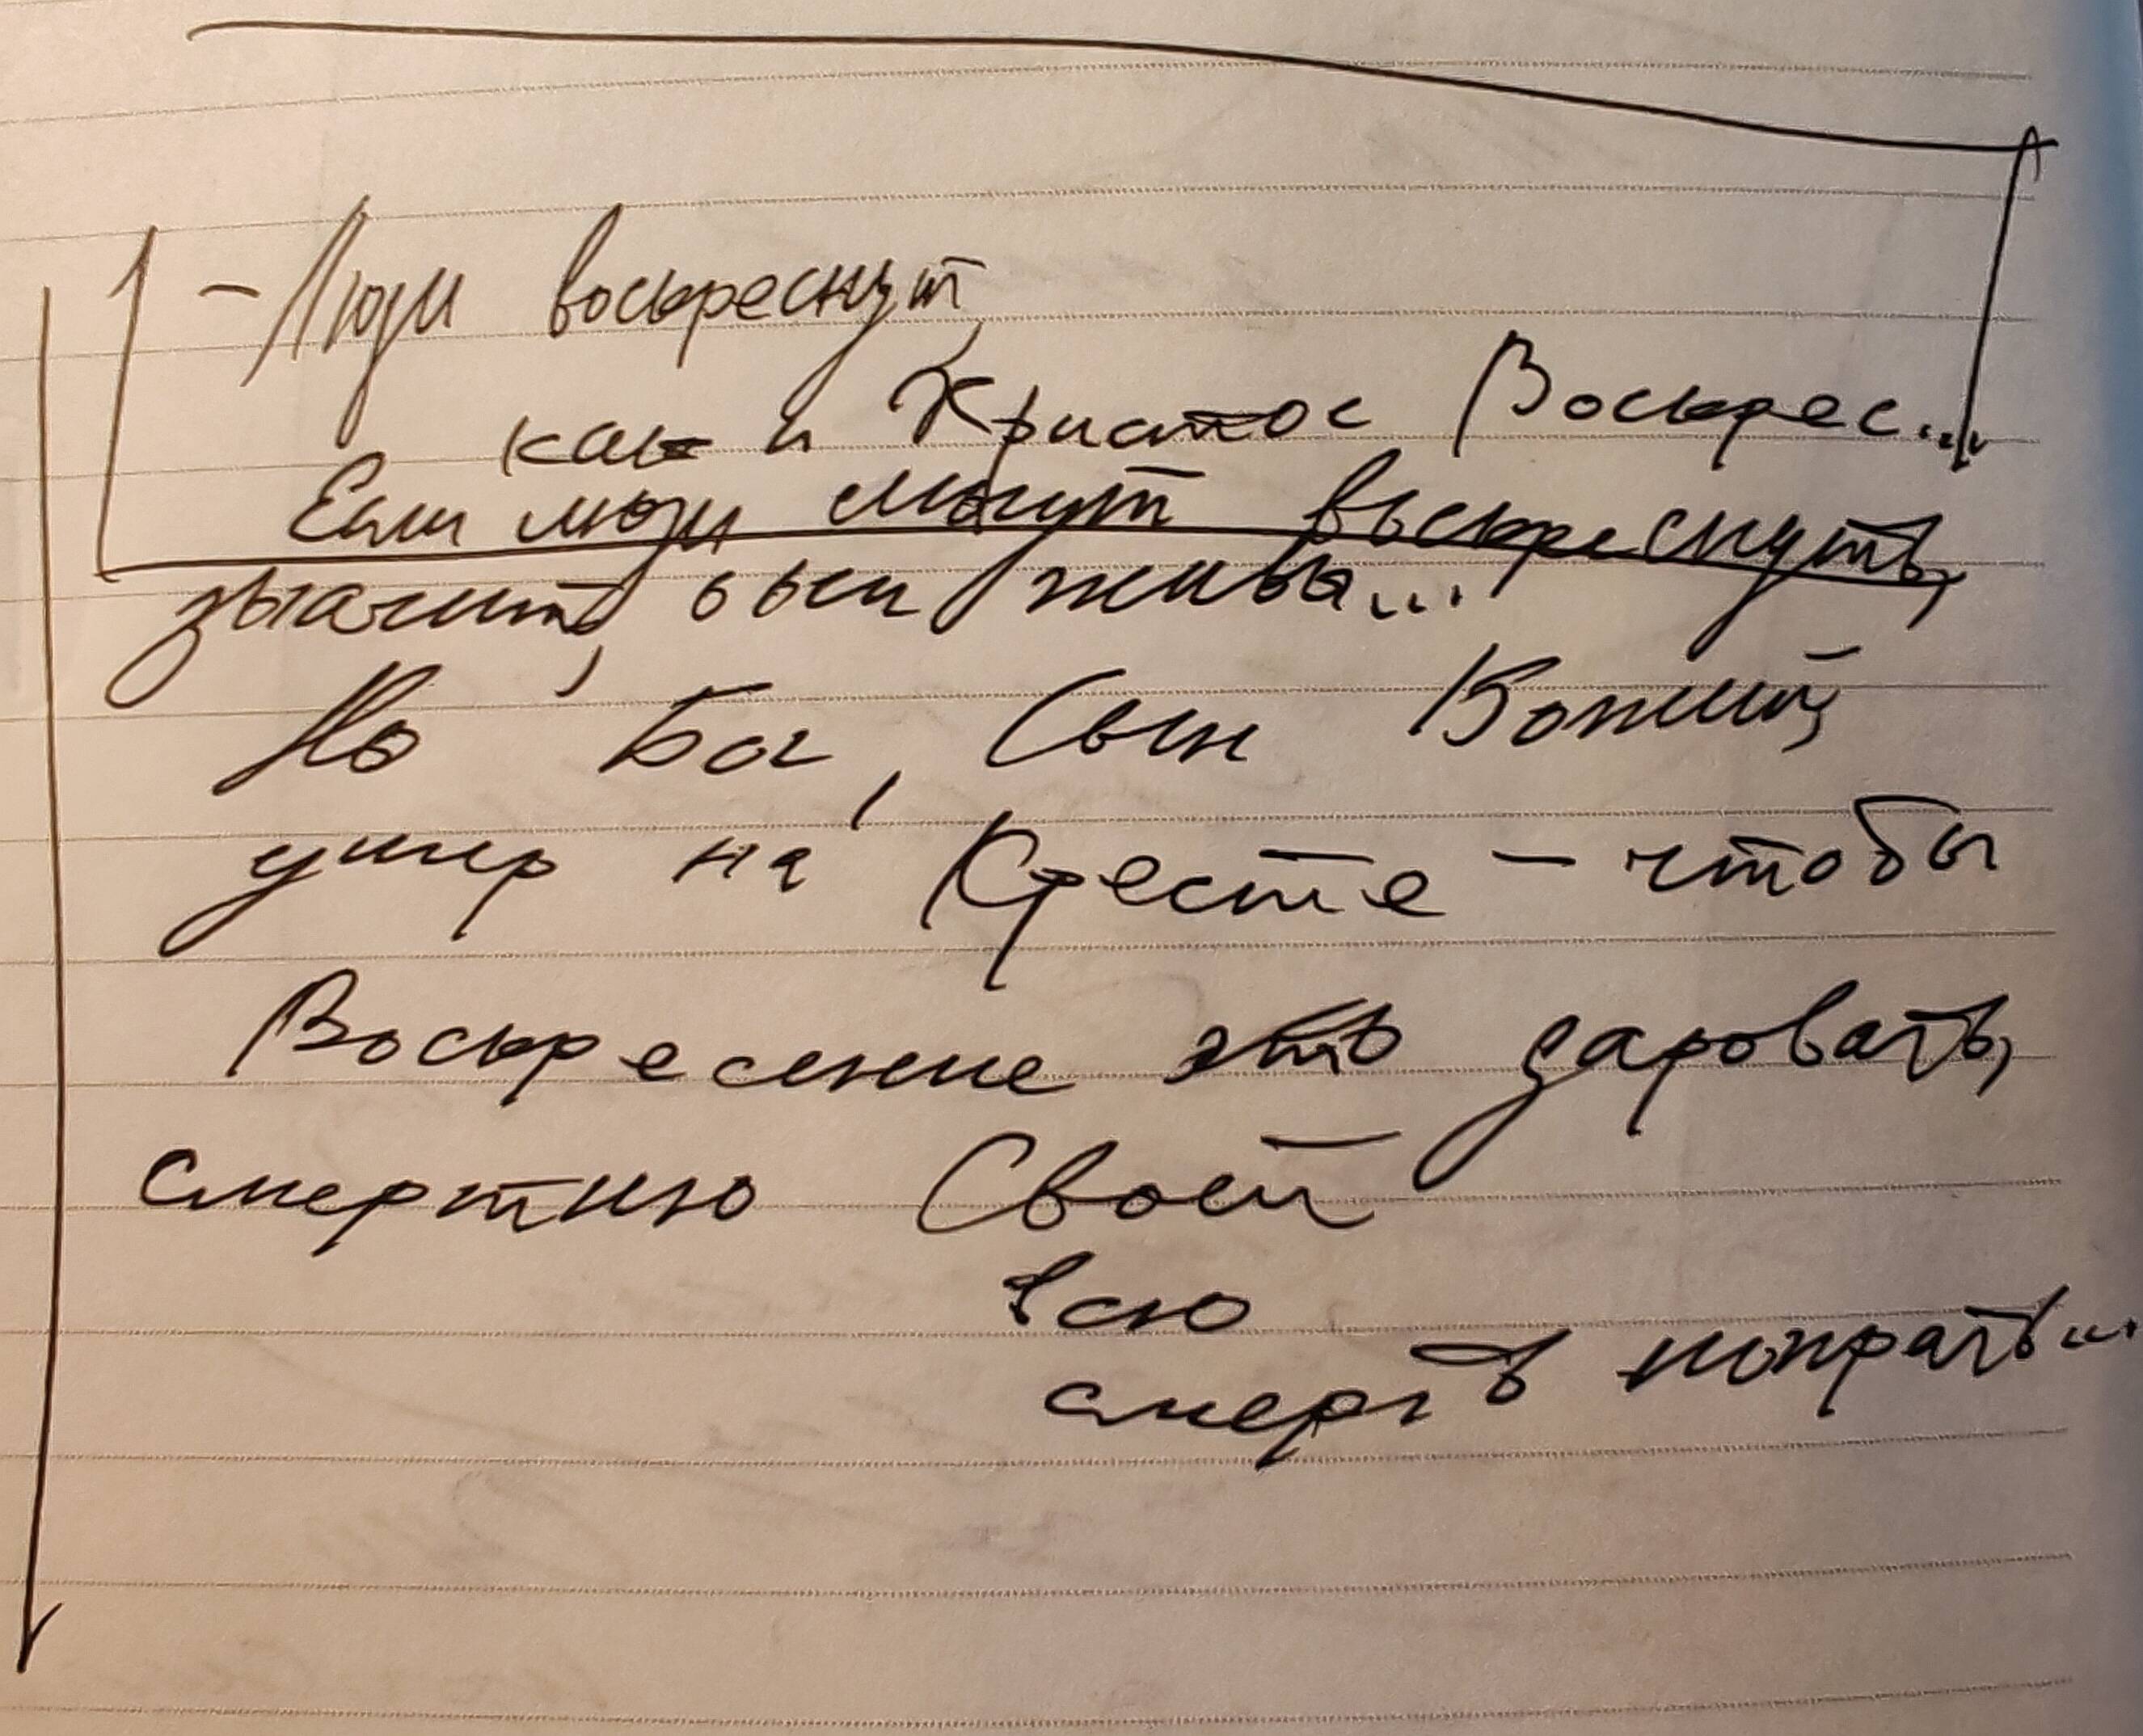 - Люди воскреснут,
как и Христос Воскрес...
Если люди могут воскреснуть,
значит, они живы...
Но Бог, Сын Божий,
умер на Кресте - чтобы
Воскресение это даровать,
смертию Своей
всю
смерть попрать...